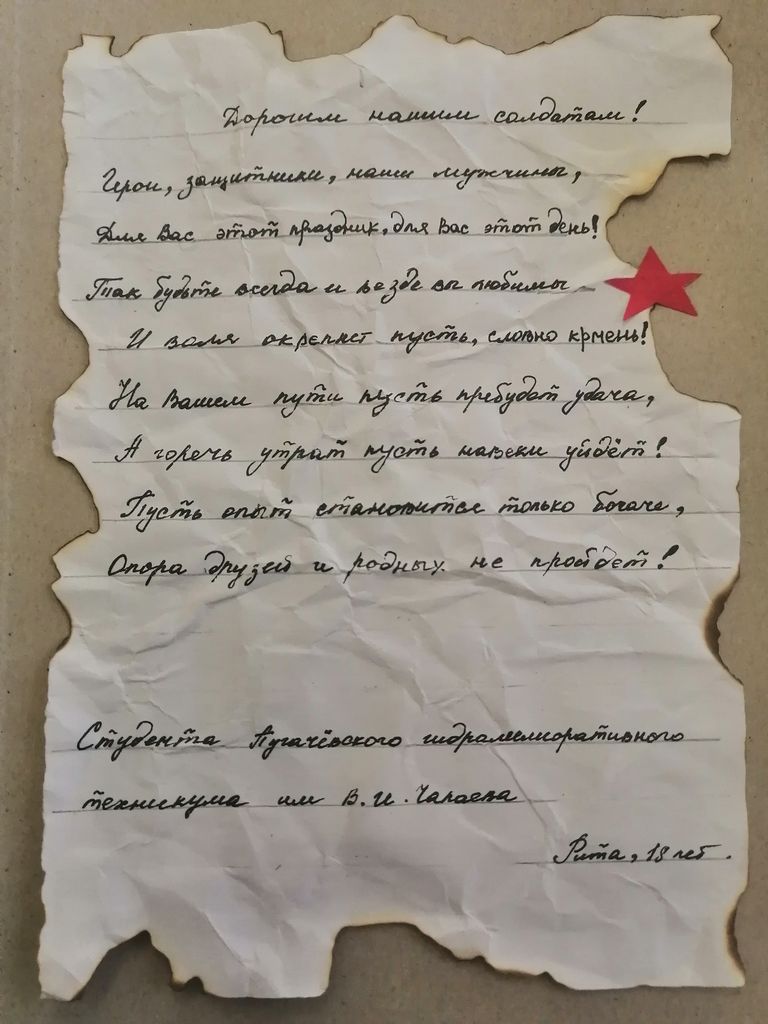 Дорогим нашим солдатам!
Герои, защитники, наши мужчины,
Для Вас этот праздник, для Вас этот день!
Так будьте всегда и везде вы любимы
И воля окрепнет пусть, словно крмень!
На Вашем пути пусть пребудет удача,
А горечь утрат пусть навеки уйдёт!
Пусть опыт становится только богаче,
Опора друзей и родных не пройдет!
Студента Пугачёвского гидромелиоративного
техникума им В.И. Чапаева
Рита, 18 лет.